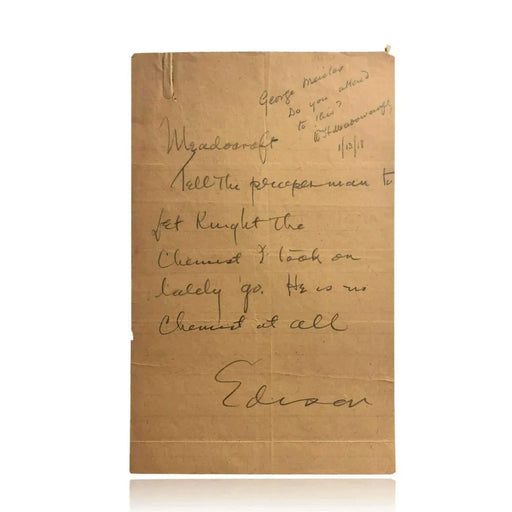 George
Do you attend
to this?
1/13/18
Meadocroft
Tell the proper man to
let Knight the
Chemist I took on
lately go. He is no
Chemist at all
Edison